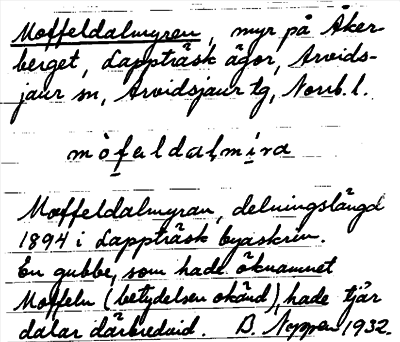 Moffeldalmyren, myr på Åker-
berget, Lappträsk ägor, Arvids-
jaur sn, Arvidsjaur tg, Norrb. l.
mòfəldal,mi̮ra
Moffeldalmyran, delningslängd
1894 i Lappträsk byaskrin.
En gubbe, som hade öknamnet
Moffeln (betydelsen okänd), hade tjär
dalar därbredvid. D. 1932.